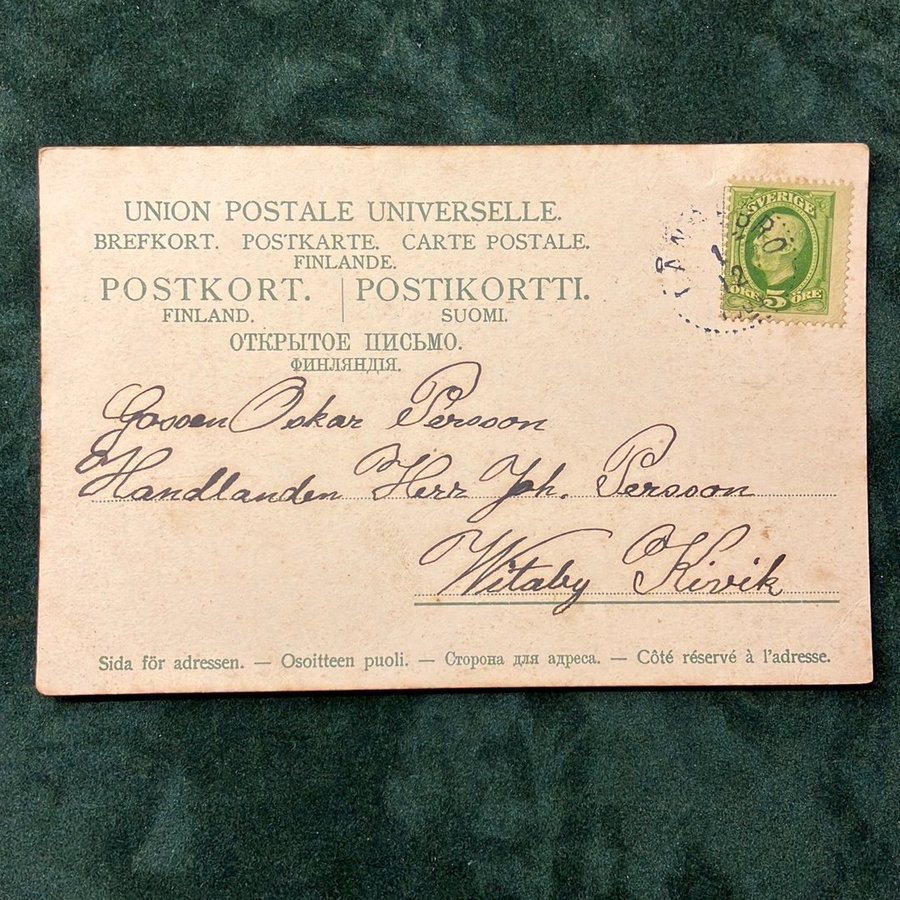 UNION POSTALE UNIVERSELLE.
BREFKORT. POSTKARTE. CARTE POSTALE.
FINLANDE.
POSTKORT. | POSTIKORTTI.
FINLAND. SUOMI.
ОТКРЫТОЕ ПИСЬМО.
ФИНЛЯНДІЯ.
SVERIGE
5 ÖRE
Gossen Oskar Persson
Handlanden Herr Joh. Persson
Witaby Kivik
Sida för adressen. — Osoitteen puoli. — Сторона для адреса. — Côté réservé à l'adresse.